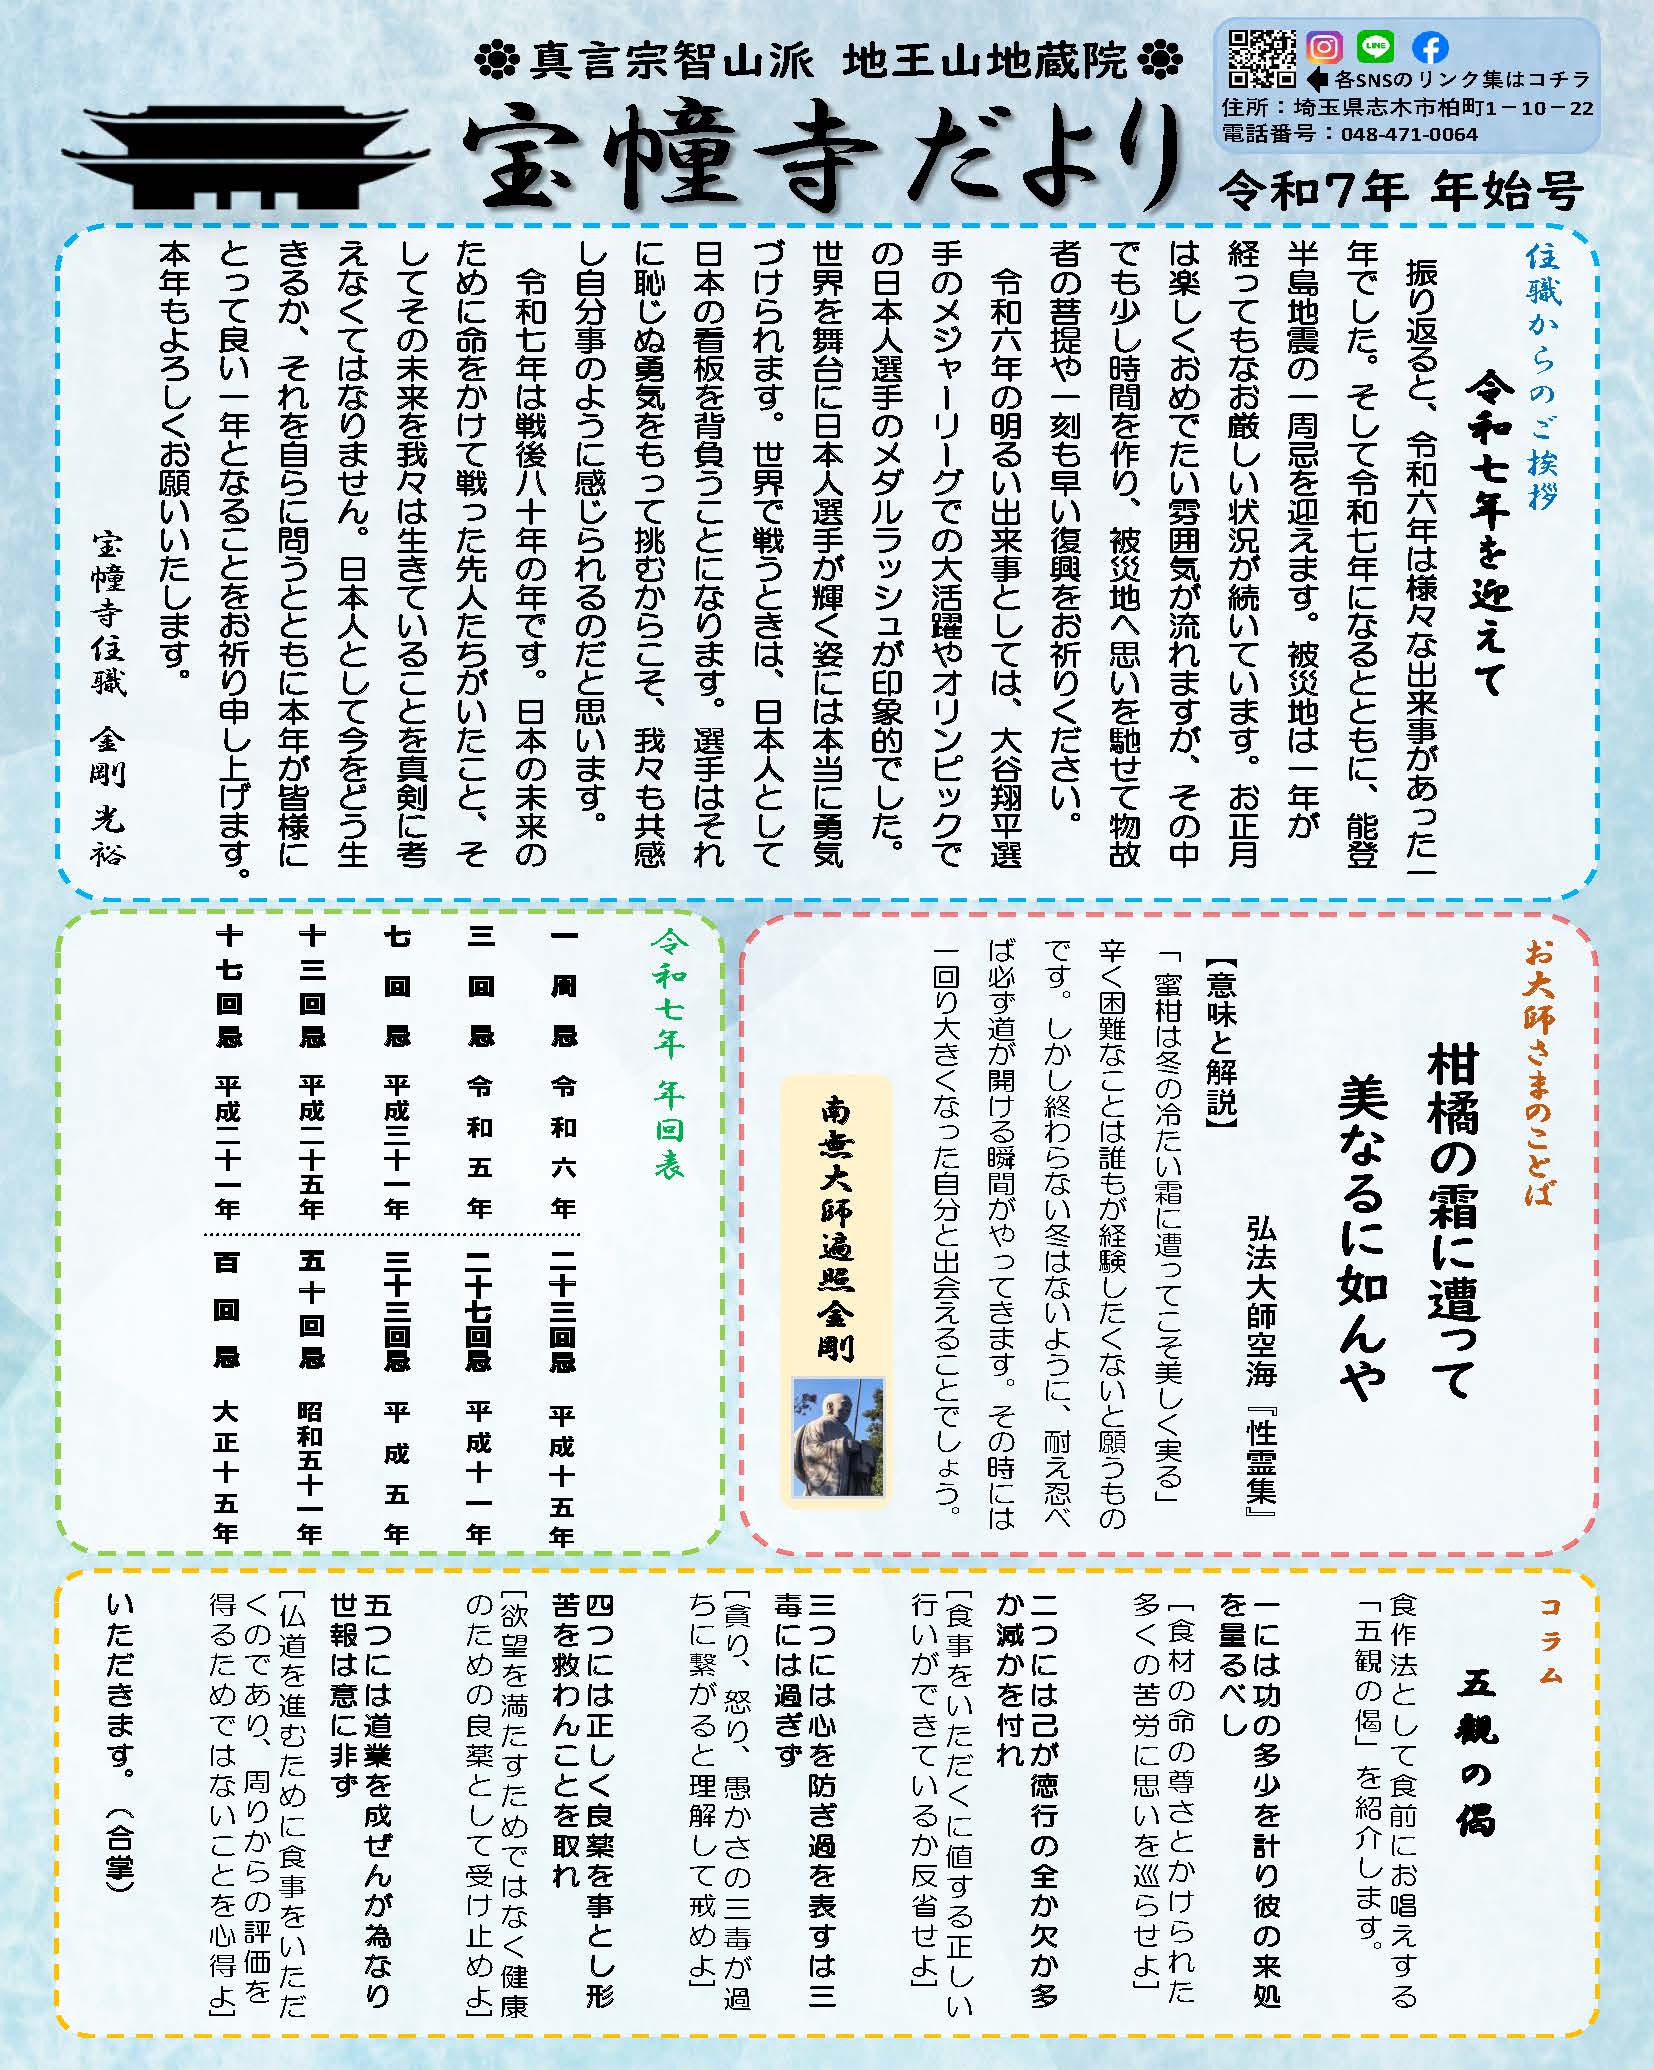 真言宗智山派 地王山地蔵院
宝幢寺だより
各SNSのリンク集はコチラ
住所：埼玉県志木市柏町1－10－22
電話番号：048-471-0064
令和7年 年始号
住職からのご挨拶
令和七年を迎えて
振り返ると、令和六年は様々な出来事があった一
年でした。そして令和七年になるとともに、能登
半島地震の一周忌を迎えます。被災地は一年が
経ってもなお厳しい状況が続いています。お正月
は楽しくおめでたい雰囲気が流れますが、その中
でも少し時間を作り、被災地へ思いを馳せて物故
者の菩提や一刻も早い復興をお祈りください。
令和六年の明るい出来事としては、大谷翔平選
手のメジャーリーグでの大活躍やオリンピックで
の日本人選手のメダルラッシュが印象的でした。
世界を舞台に日本人選手が輝く姿には本当に勇気
づけられます。世界で戦うときは、日本人として
日本の看板を背負うことになります。選手はそれ
に恥じぬ勇気をもって挑むからこそ、我々も共感
し自分事のように感じられるのだと思います。
令和七年は戦後八十年の年です。日本の未来の
ために命をかけて戦った先人たちがいたこと、そ
してその未来を我々は生きていることを真剣に考
えなくてはなりません。日本人として今をどう生
きるか、それを自らに問うとともに本年が皆様に
とって良い一年となることをお祈り申し上げます。
本年もよろしくお願いいたします。
宝幢寺住職 金剛光裕
お大師さまのことば
柑橘の霜に遭って
美なるに如んや
弘法大師空海『性霊集』
【意味と解説】
「蜜柑は冬の冷たい霜に遭ってこそ美しく実る」
辛く困難なことは誰もが経験したくないと願うもの
です。しかし終わらない冬はないように、耐え忍べ
ば必ず道が開ける瞬間がやってきます。その時には
一回り大きくなった自分と出会えることでしょう。
南無大師遍照金剛
令和七年 年回表
一周忌 令和六年
三回忌 令和五年
七回忌 平成三十一年
十三回忌 平成二十五年
十七回忌 平成二十一年
二十三回忌 平成十五年
二十七回忌 平成十一年
三十三回忌 平成五年
五十回忌 昭和五十一年
百回忌 大正十五年
コラム
五観の偈
食作法として食前にお唱えする
「五観の偈」を紹介します。
一には功の多少を計り彼の来処
を量るべし
［食材の命の尊さとかけられた
多くの苦労に思いを巡らせよ］
二つには己が徳行の全か欠か多
か減かを付れ
［食事をいただくに値する正しい
行いができているか反省せよ］
三つには心を防ぎ過を表すは三
毒には過ぎず
［貪り、怒り、愚かさの三毒が過
ちに繋がると理解して戒めよ］
四つには正しく良薬を事とし形
苦を救わんことを取れ
［欲望を満たすためではなく健康
のための良薬として受け止めよ］
五つには道業を成ぜんが為なり
世報は意に非ず
［仏道を進むために食事をいただ
くのであり、周りからの評価を
得るためではないことを心得よ］
いただきます。（合掌）